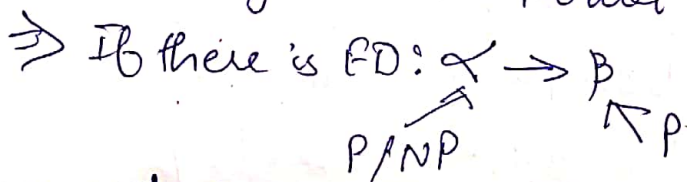 ⇒ If there is FD: α → β
P/NP P